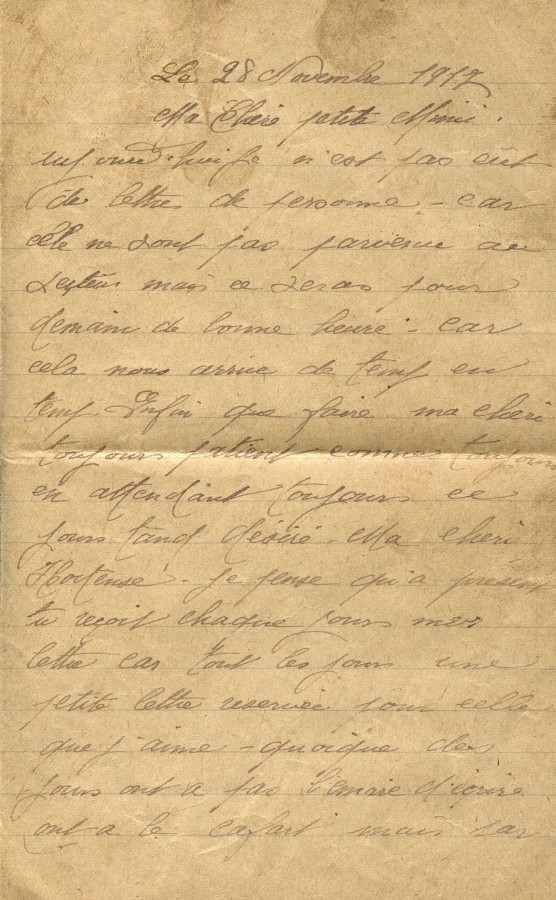 Le 28 Novembre 1917
Ma Cheri petite Mimi.
aujourd'huit je n'est pas eût
de lettre de personne - car
elle ne sont pas parvenu au
secteur mais ce seras pour
demain de bonne heure - car
cela nous arrive de temp en
temp Enfin que faire ma cheri
toujours patient comme toujours
en attendant toujours ce
jours tand désiré. Ma cheri
Hortense - je pense qu'a présent
tu reçoit chaque jours mes
lettre car tout les jours une
petite lettre reservée pour celle
que j'aime - quoique des
jours ont a pas l'envie d'écrire
ont a le cafart mais sar